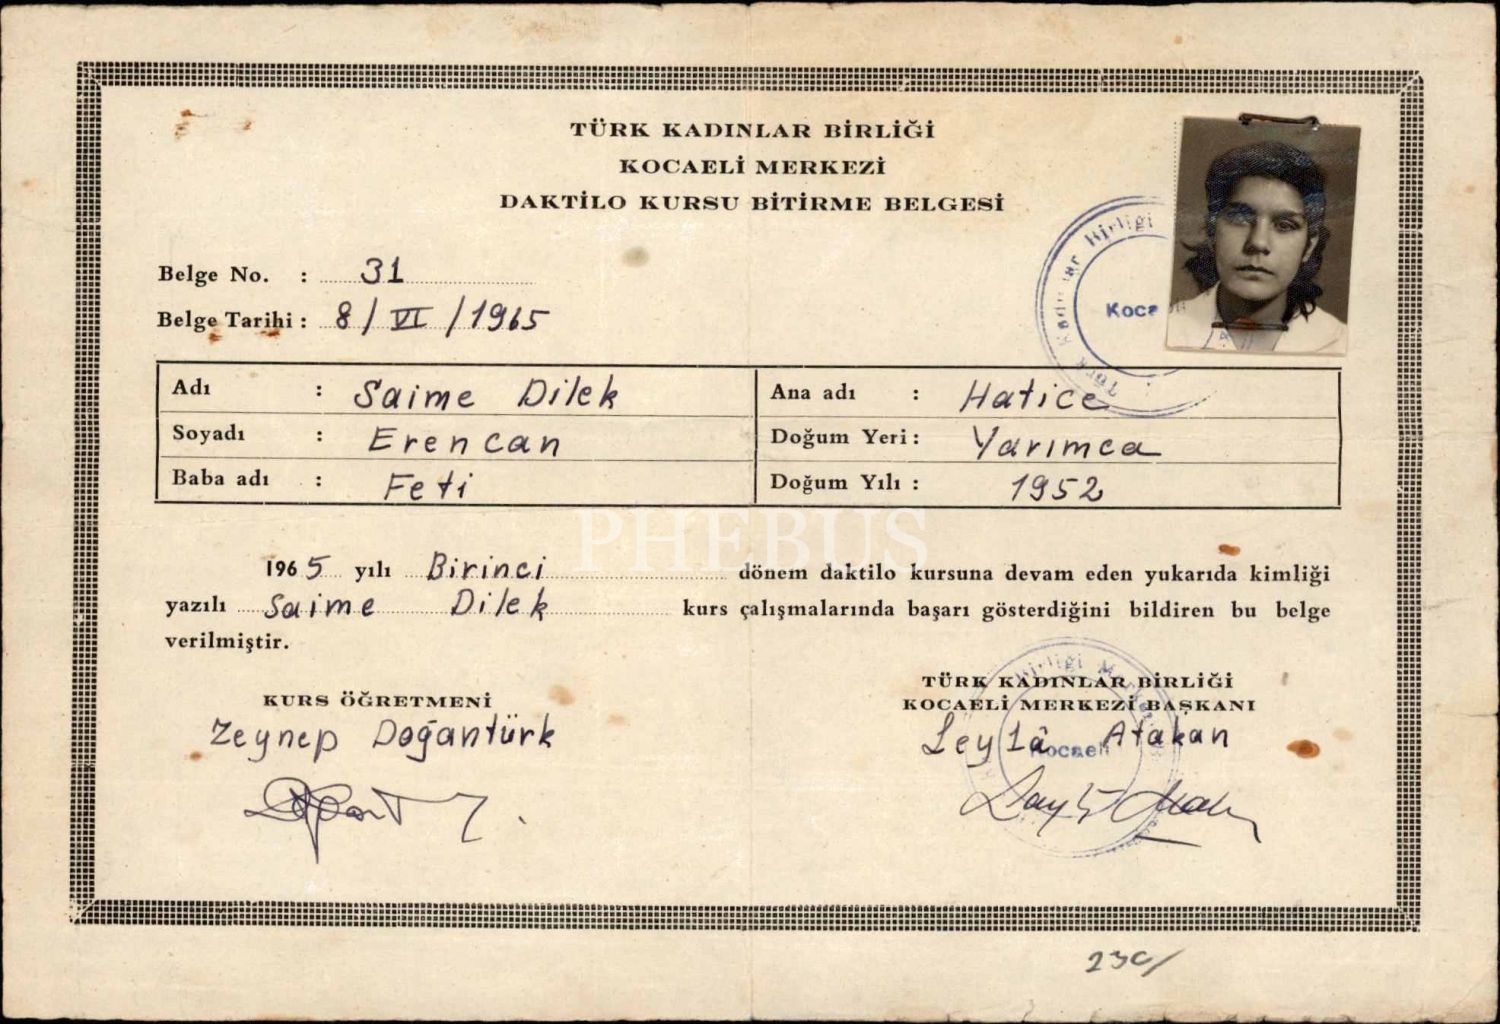 TÜRK KADINLAR BİRLİĞİ
KOCAELİ MERKEZİ
DAKTİLO KURSU BİTİRME BELGESİ
Belge No. : 31
Belge Tarihi : 8/VI/1965
Türk Kadınlar Birliği
Kocaeli
Adı : Saime Dilek
Ana adı : Hatice
Soyadı : Erencan
Doğum Yeri : Yarımca
Baba adı : Feti
Doğum Yılı : 1952
PHEBUS
1965 yılı Birinci dönem daktilo kursuna devam eden yukarıda kimliği
yazılı Saime Dilek kurs çalışmalarında başarı gösterdiğini bildiren bu belge
verilmiştir.
KURS ÖĞRETMENİ
Zeynep Doğantürk
TÜRK KADINLAR BİRLİĞİ
KOCAELİ MERKEZİ BAŞKANI
Leylâ Atakan
Birliği
Kocaeli
230/